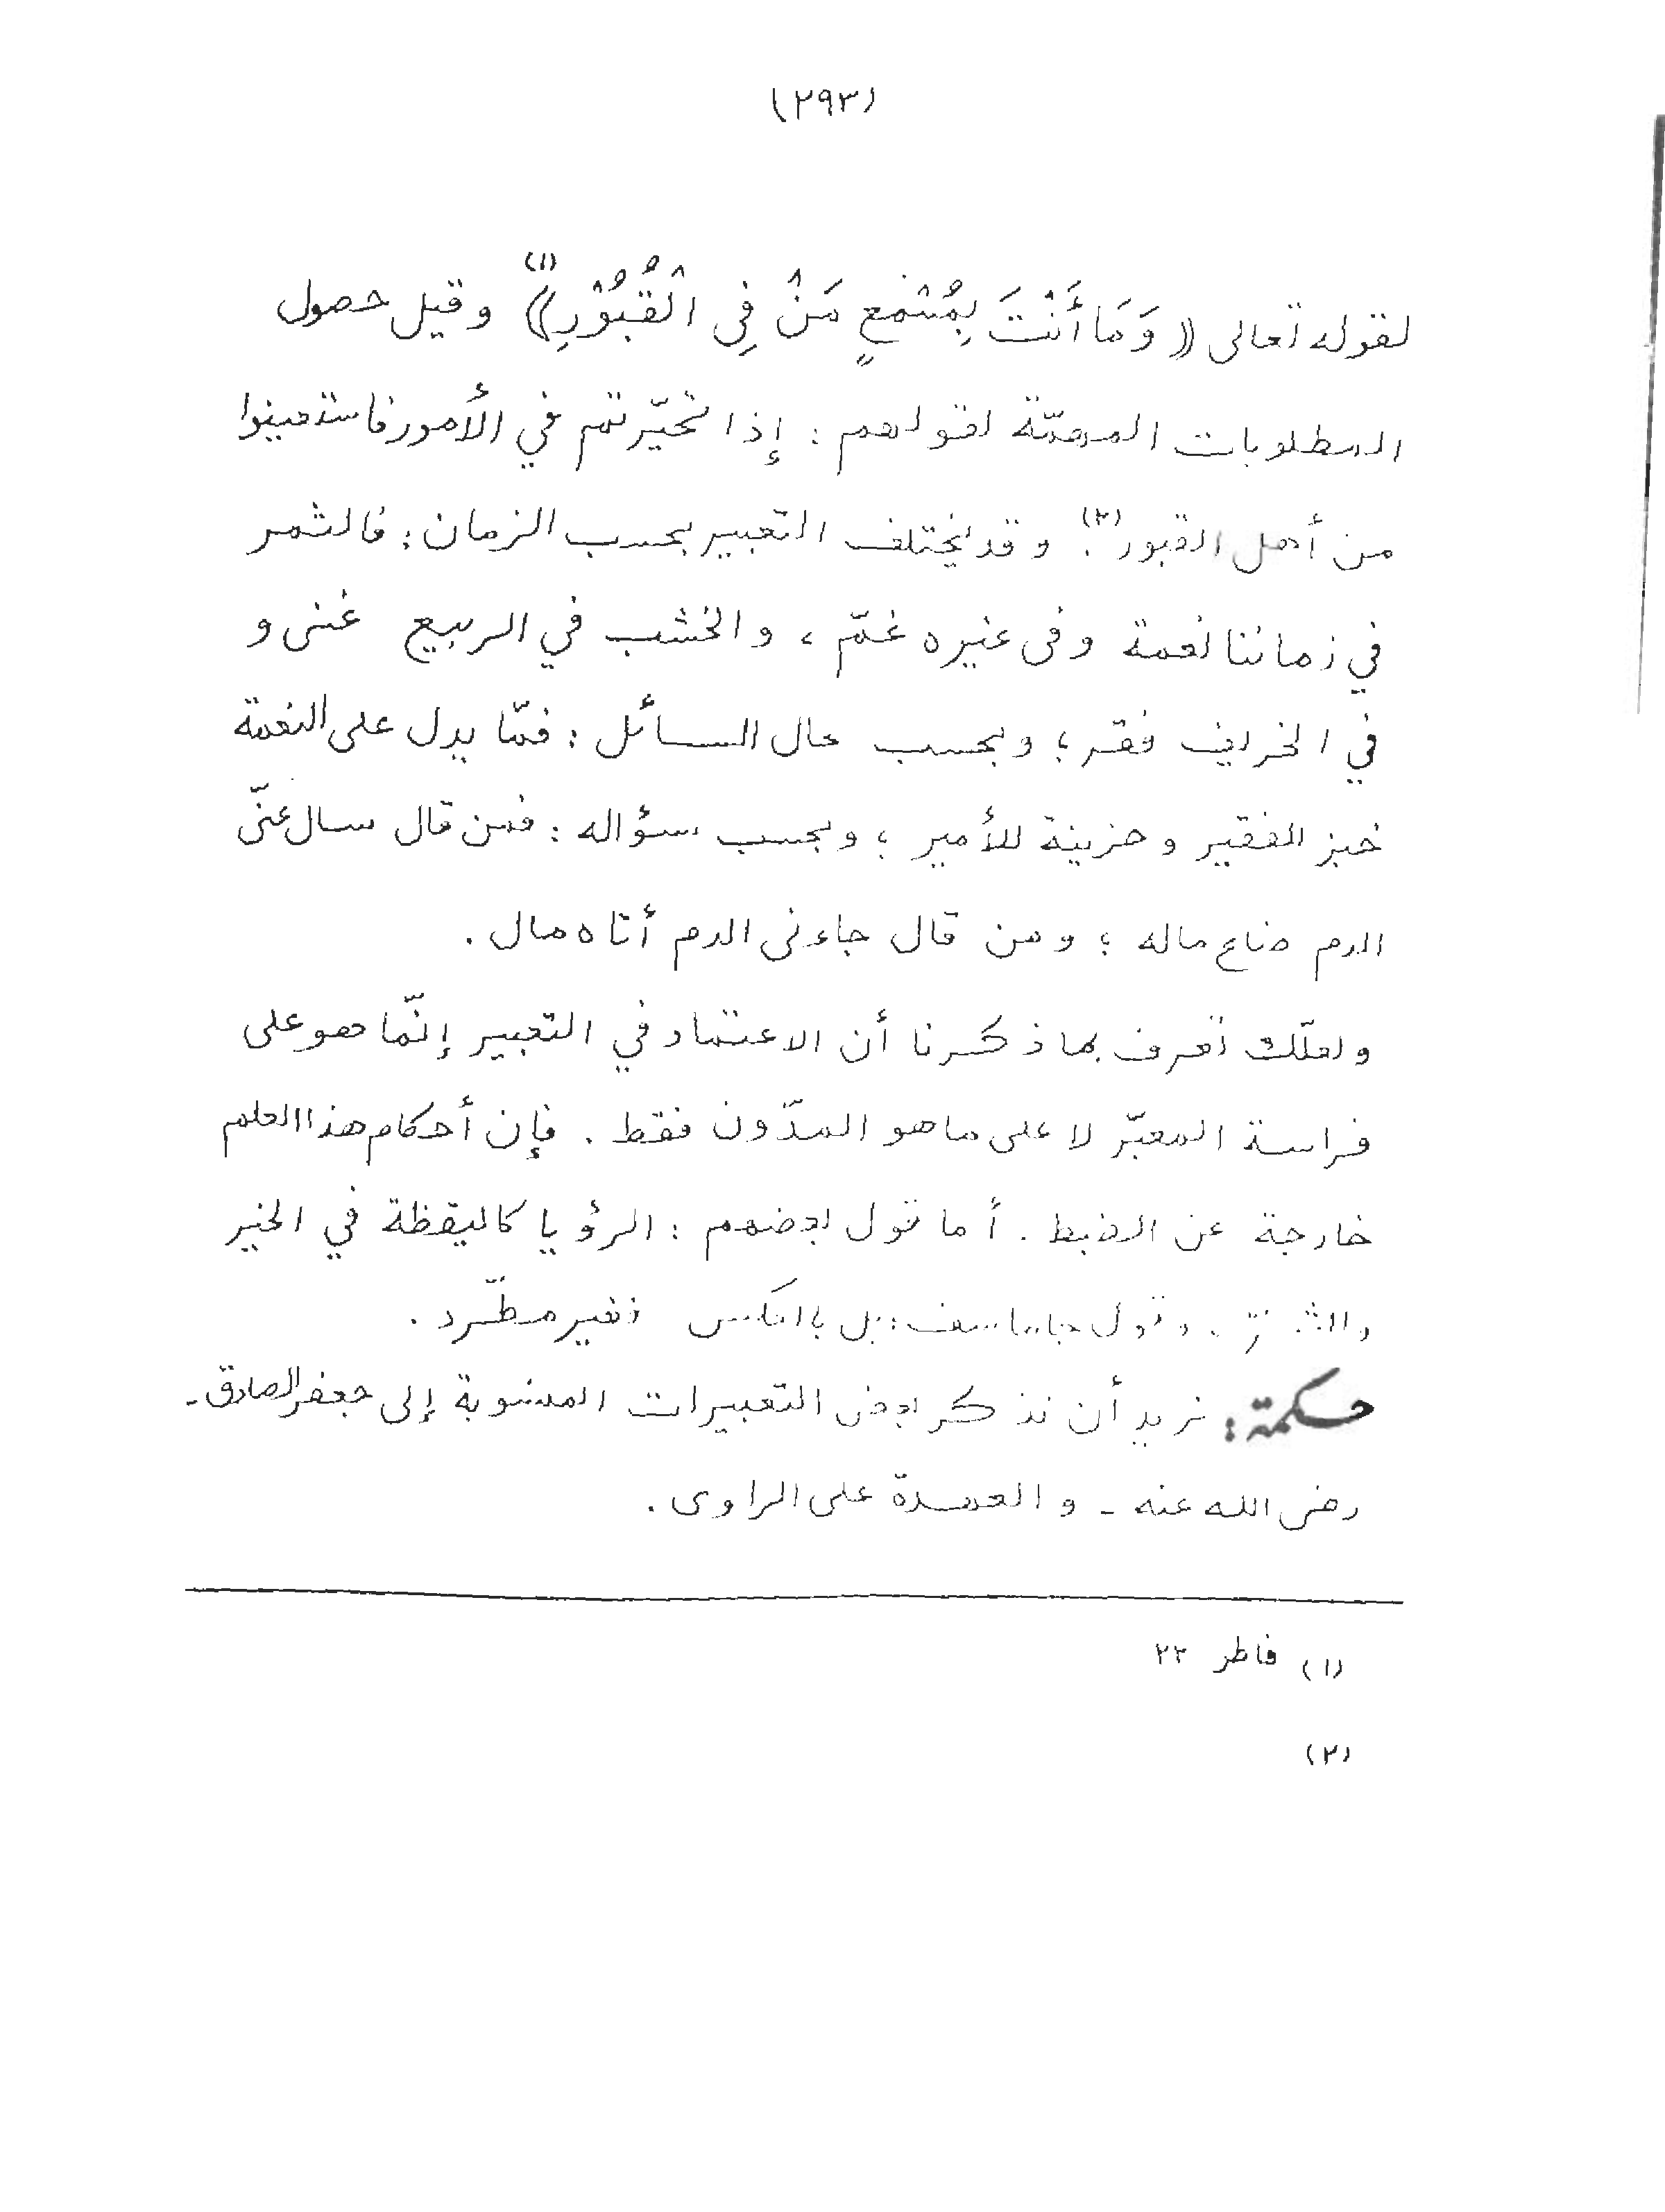 (٢٩٣)
لقوله تعالى ((وَمَا أَنْتَ بِمُسْمِعٍ مَنْ فِى الْقُبُوْرِ))(١) وقيل حصول
المطلوبات المهمّة لقولهم : إذا تحيّرتم في الأمور فاستعينوا
من أهل القبور(٢). وقد يختلف التعبير بحسب الزمان : فالثمر
في زماننا نعمة وفى غيره غمّ ، والخشب في الربيع غنى و
في الخريف فقر ؛ وبحسب حال السائل : فمّا يدل على النعمة
خبز الفقير وخزينة للأمير ؛ وبحسب سؤاله : فمن قال سال عنّى
الدم ضاع ماله ؛ ومن قال جاءنى الدم أتاه مال .
ولعلّك تعرف بما ذكرنا أن الاعتماد في التعبير إنّما هو على
فراسة المعبّر لا على ما هو المدّون فقط . فإن أحكام هذا العلم
خارجة عن الضبط . أما قول بعضهم : الرؤيا كاليقظة في الخير
والشرّ ، وقول : بل بالعكس فغير مطّرد .
حكمة : نريد أن نذكر بعض التعبيرات المنسوبة إلى جعفر الصادق -
رضى الله عنه - والعهدة على الراوى .
(١) فاطر ٢٢
(٢)